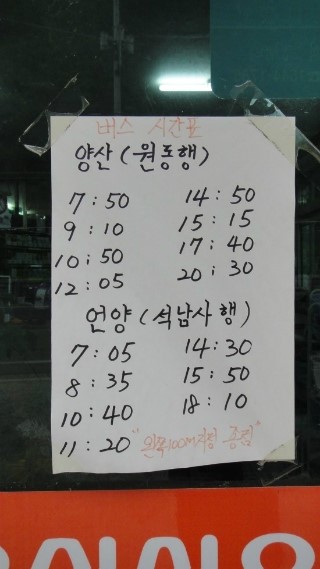 버스 시간표
양산 (원동행)
7 : 50 14 : 50
9 : 10 15 : 15
10 : 50 17 : 40
12 : 05 20 : 30
언양 (석남사행)
7 : 05 14 : 30
8 : 35 15 : 50
10 : 40 18 : 10
11 : 20 "왼쪽100m지점 종점"